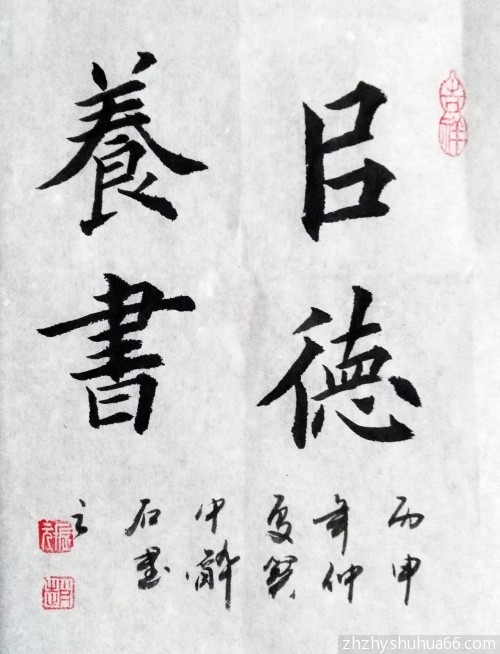 㠯德
養書
丙申
年仲
夏巽
中
石書
之
吉祥
zhzhyshuhua66.com